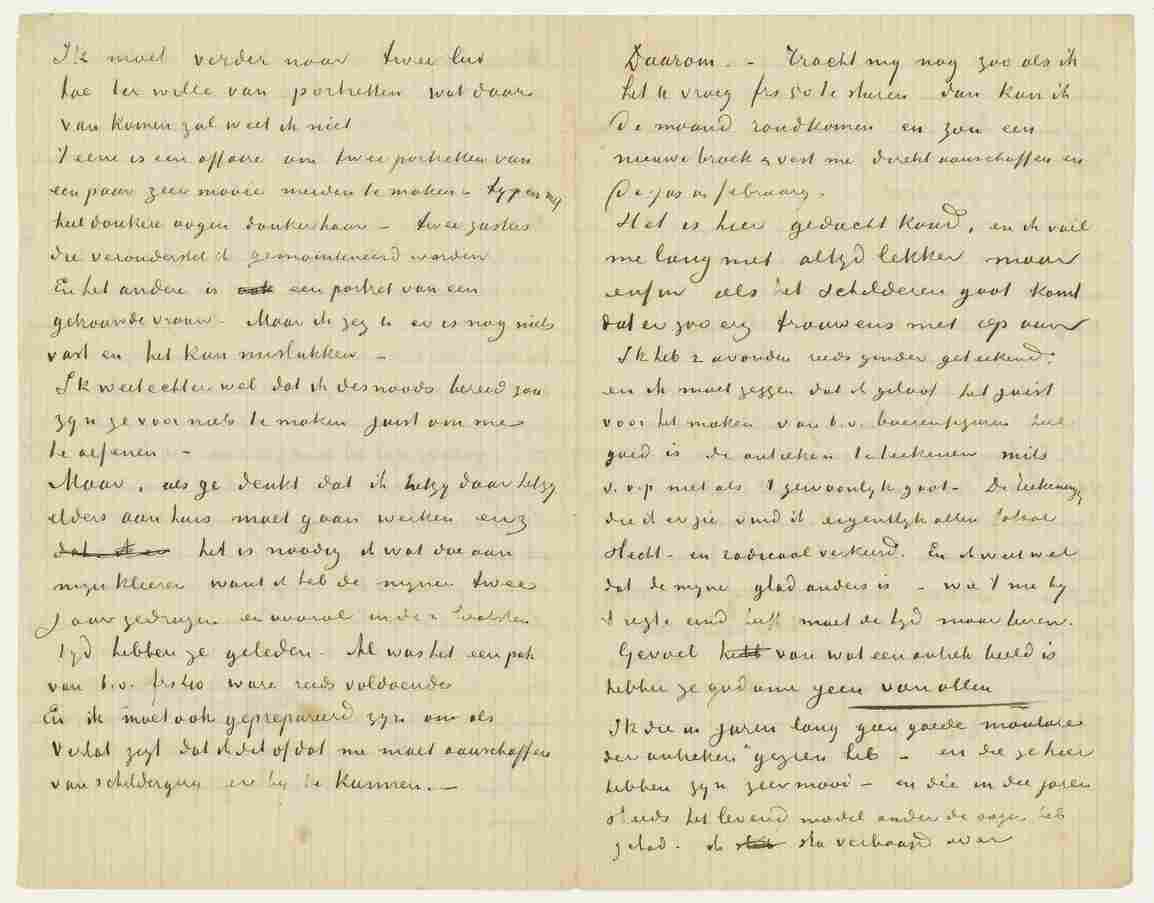 Ik moet verder naar twee lui
toe ter wille van portretten wat daar
van komen zal weet ik niet
't eene is een affaire om twee portretten van
een paar zeer mooie meiden te maken – typen
heel donkere oogen donker haar – twee zusters
die veronderstel ik gemainteneerd worden
En het andere is ook een portret van een
getrouwde vrouw. Maar ik zeg U er is nog niets
vast en het kan mislukken –
Ik weet echter wel dat ik desnoods bereid zou
zyn ze voor niets te maken juist om me
te oefenen –
Maar, als ge denkt dat ik hetzy daar hetzy
elders aan huis moet gaan werken enz
het is noodig ik wat doe aan
mijn kleeren want ik heb de myne twee
jaar gedragen en vooral in de laatsten
tyd hebben ze geleden – Al was het een pak
van b.v. frs 40 ware reeds voldoende
En ik moet ook geprepareerd zyn om als
Verlat zegt dat ik dit of dat me moet aanschaffen
van schildergerei er by te kunnen. –
Daarom. – Tracht my nog zoo als ik
het U vroeg frs 50 te sturen dan kan ik
de maand rondkomen en zou een
nieuwe broek & vest me direkt aanschaffen en
de jas in februari.
Het is hier geducht koud, en ik voel
me lang niet altyd lekker maar
enfin als het schilderen gaat komt
dat er zoo erg trouwens niet op aan
Ik heb 2 avonden reeds ginder geteekend.
en ik moet zeggen dat ik geloof het juist
voor het maken van b.v. boerenfiguren heel
goed is de antieken te teekenen mits
s.v.p niet als 't gewoonlyk gaat – De teekeningen
die ik er zie vind ik eigentlyk allen fataal
slecht – en radicaal verkeerd. En ik weet wel
dat de myne glad anders is – wie 't me by
't regte eind heeft moet de tyd maar leeren.
Gevoel hett van wat een antiek beeld is
hebben ze godome geen van allen
Ik die in jaren lang geen goede moulures
der antieken gezien heb – en die ze hier
hebben zyn zeer mooi – en die in die jaren
steeds het levend model onder de oogen heb
gehad. ik sta verbaasd over